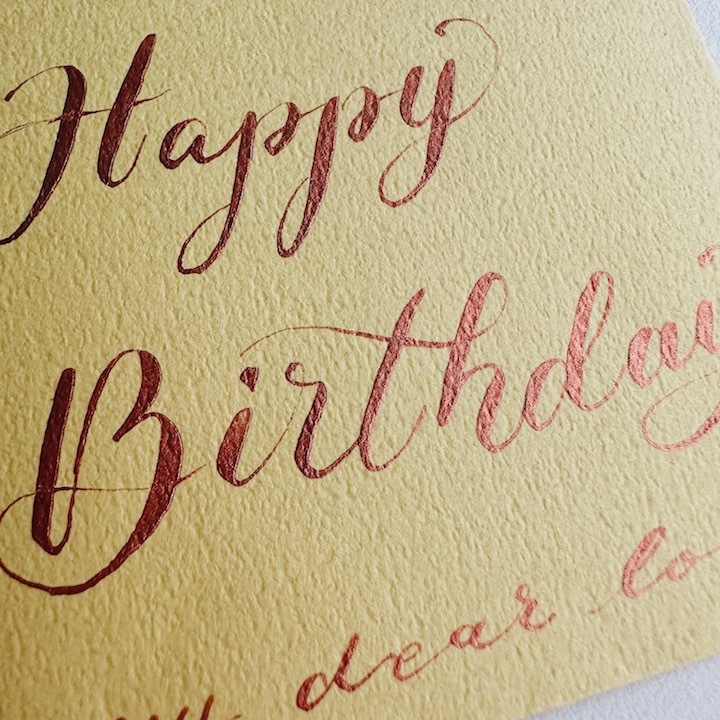 Happy
Birthday
dear lo